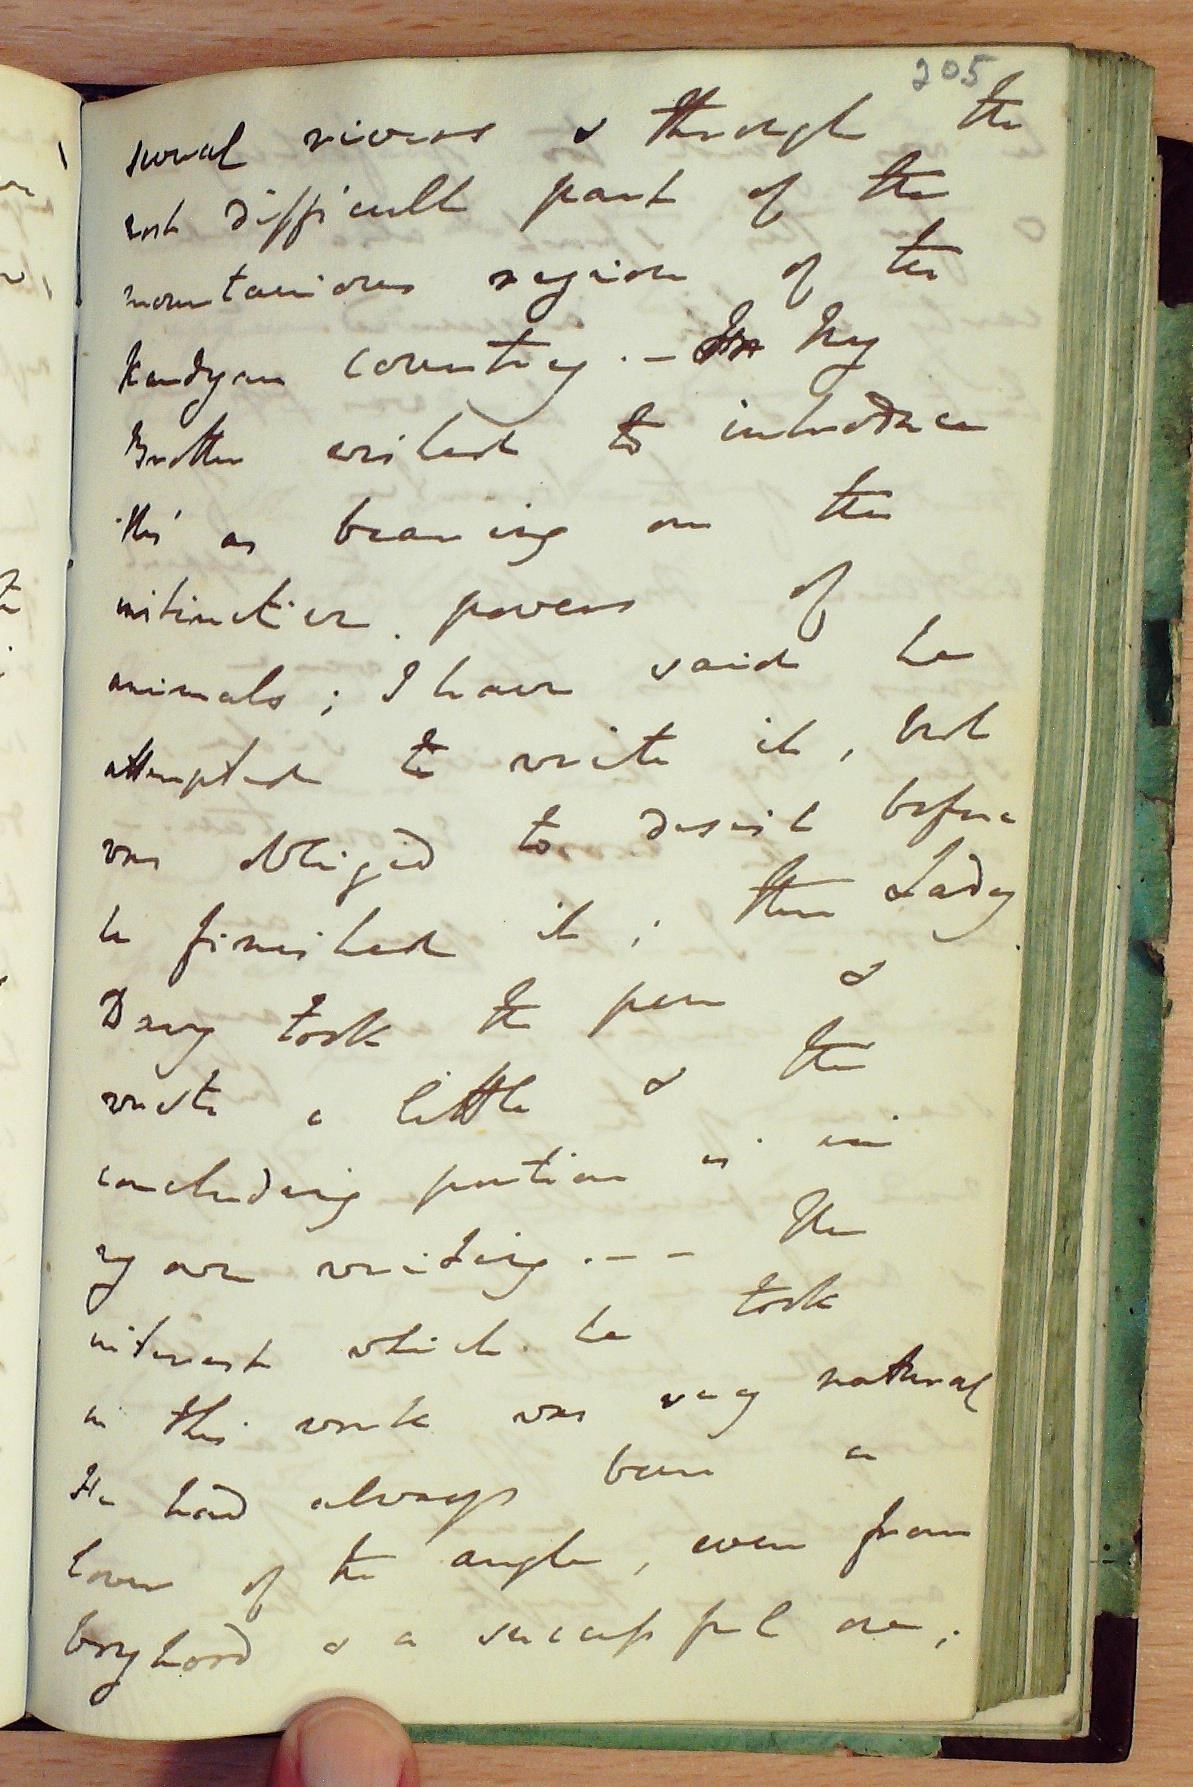 205
several rivers & through the
most difficult part of the
mountainous region of the
Kandyan country. – My
Brother wished to introduce
this as bearing on the
instinctive powers of
animals; I have said he
attempted to write it, but
was obliged to desist before
he finished it; then Lady
Davy took the pen &
wrote a little & the
concluding portion is in
my own writing. – – The
interest which he took
in this work was very natural
He had always been a
lover of the angle, even from
boyhood & a successful one;